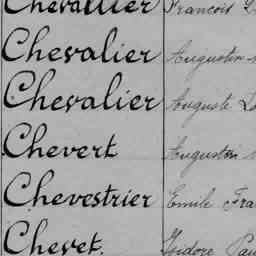 Chevallier François
Chevalier Augustin
Chevalier Auguste
Chevert Augustin
Chevestrier Emile Fra
Chevet. Isidore Pau